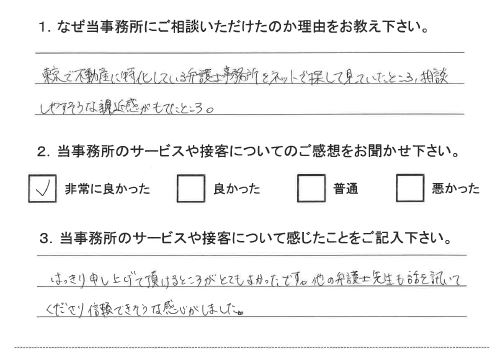 1. なぜ当事務所にご相談いただけたのか理由をお教え下さい。
東京で不動産に特化している弁護士事務所をネットで探して見ていたところ、相談
しやすそうな親近感がもてたところ。
2. 当事務所のサービスや接客についてのご感想をお聞かせ下さい。
✓ 非常に良かった 良かった 普通 悪かった
3. 当事務所のサービスや接客について感じたことをご記入下さい。
はっきり申し上げて頂けるところがとてもよかったです。他の弁護士先生も話を訊いて
くださり信頼できそうな感じがしました。